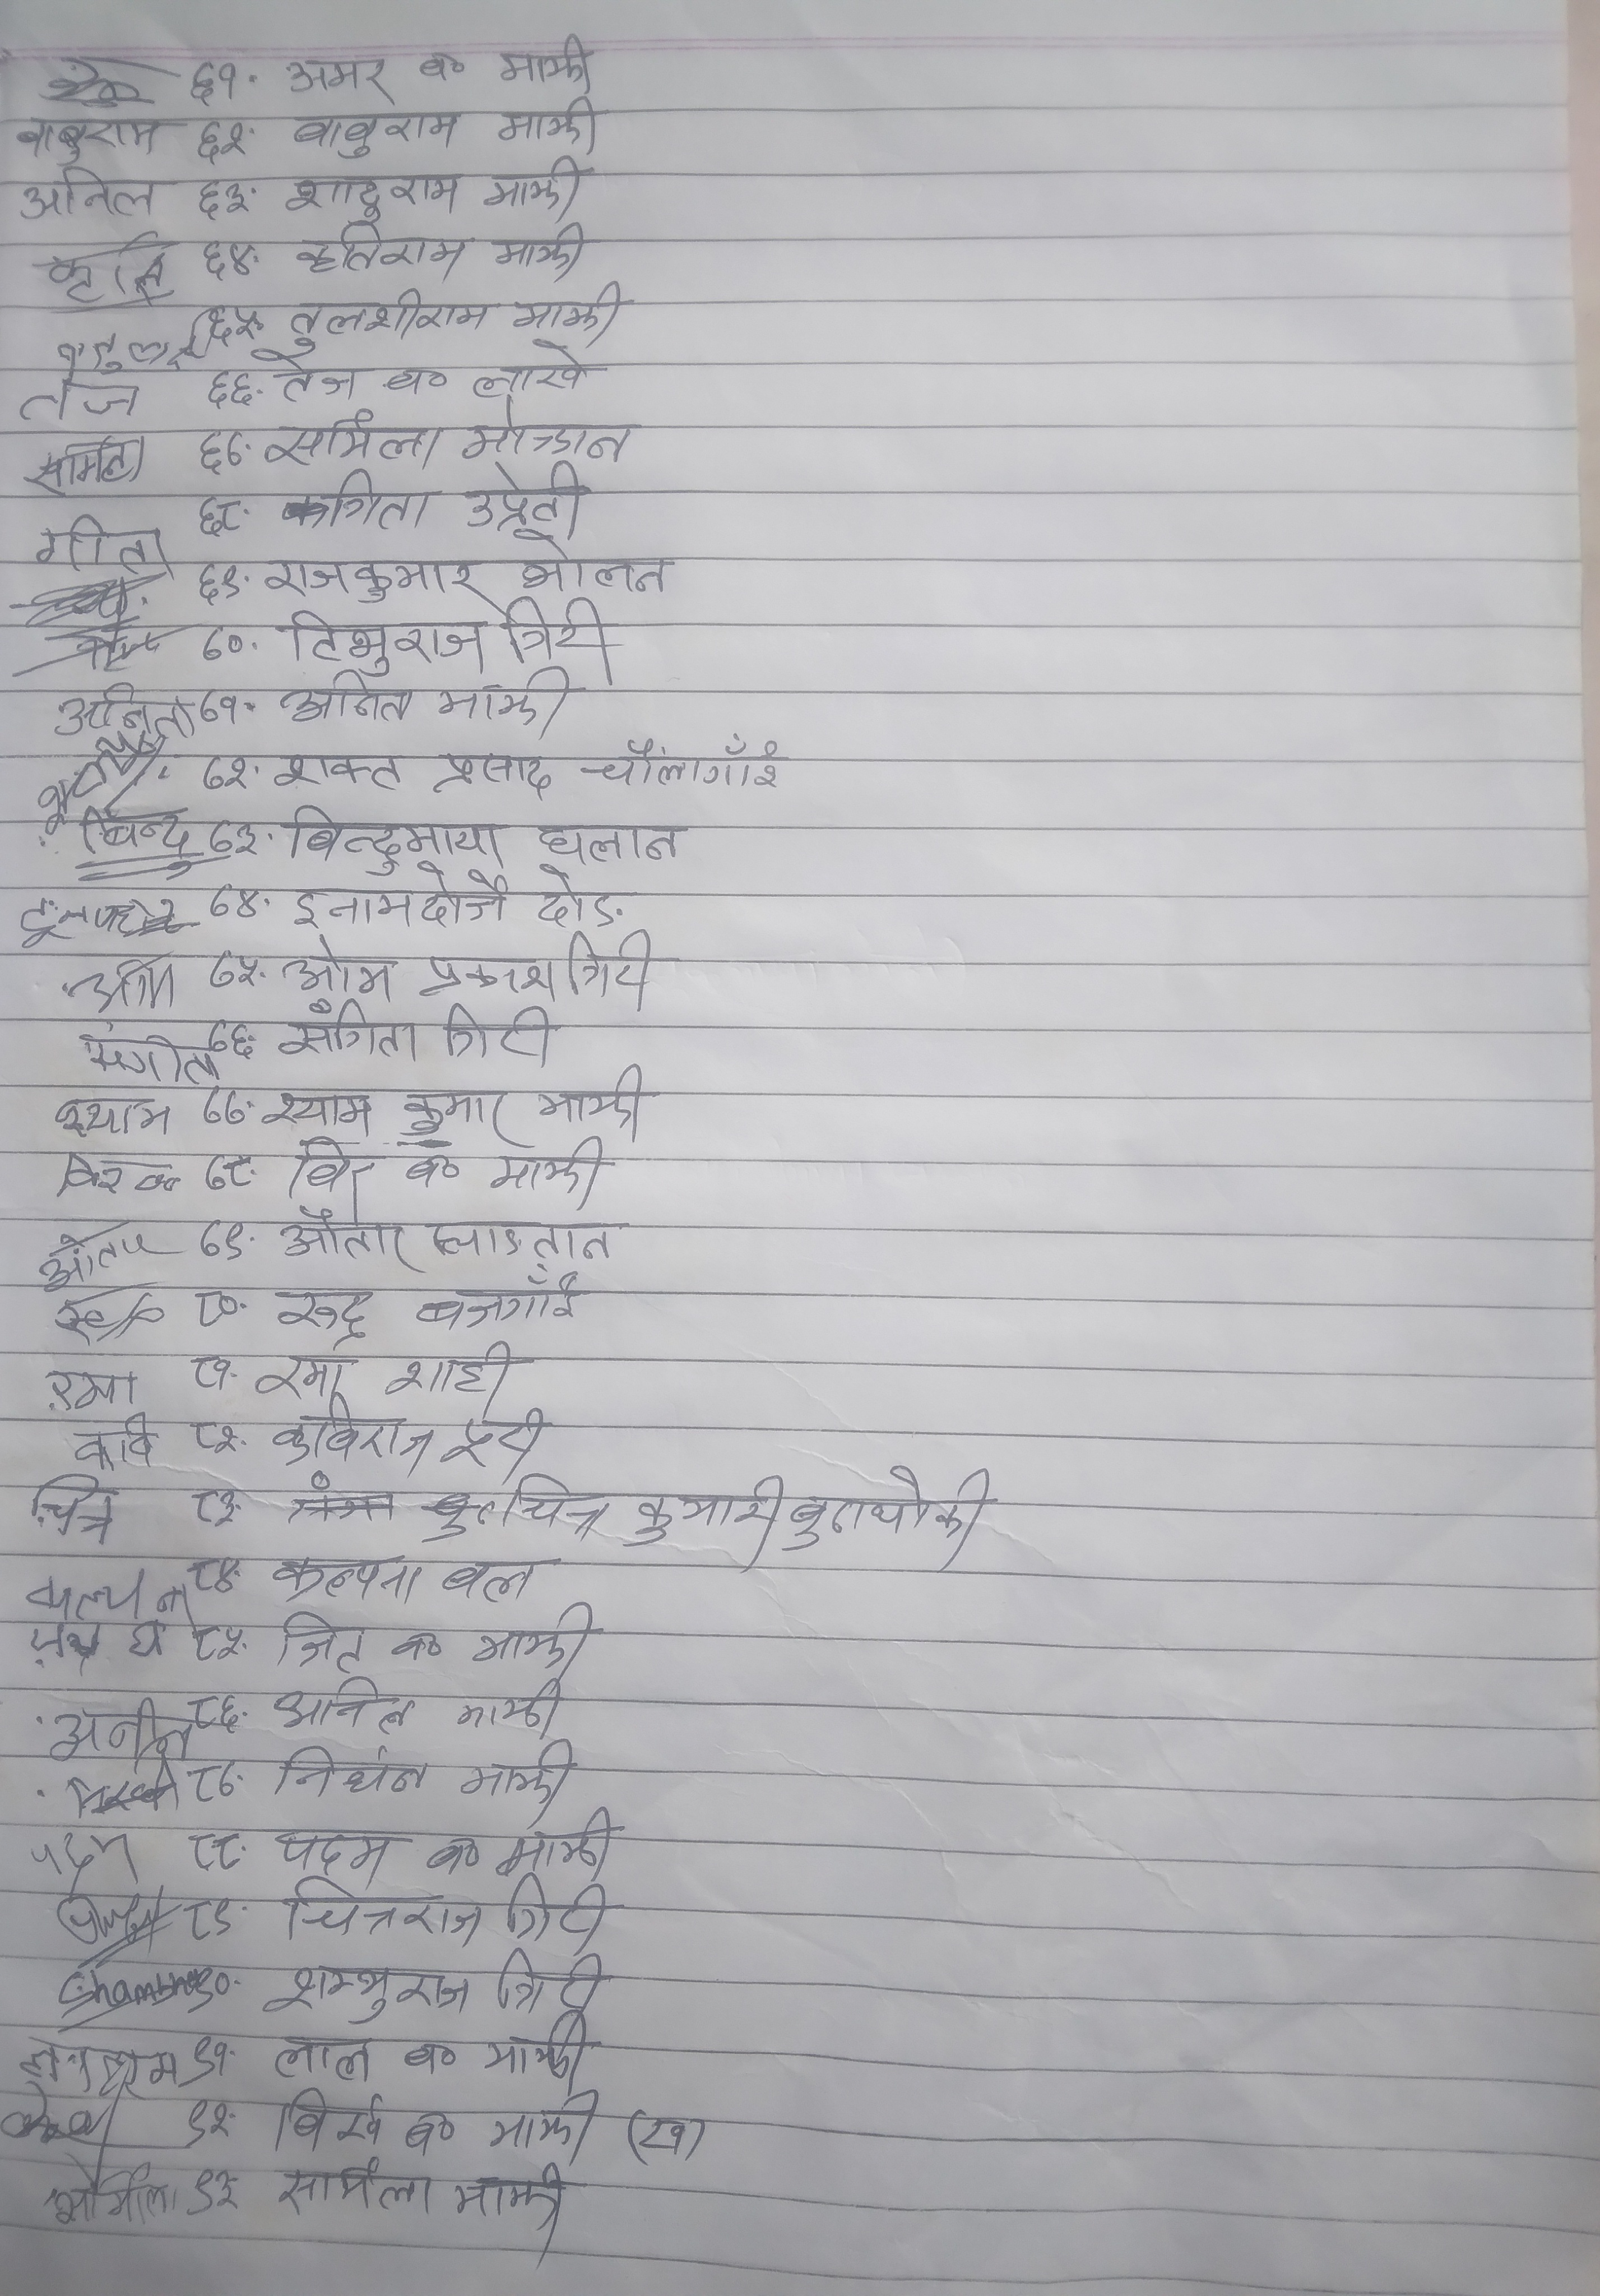 ६१. अमर ब० माझी
बाबुराम ६२. बाबुराम माझी
अनिल ६३. शादुराम माझी
कृति ६४. कृतिराम माझी
६५. तुलशीराम माझी
तेज ६६. तेज ब० लाखे
सर्मिला ६७. सर्मिला मोक्तान
गीता ६८. गिता उप्रेती
६९. राजकुमार भोलन
७०. टिभुराज गिरी
अनिता ७१. अनिता माझी
७२. शक्त प्रसाद चौंलागाँई
बिन्दु ७३. बिन्दुमाया घलान
७४. इनामदोर्जे दोङ
ओम ७५. ओम प्रकाश गिरी
संगीता ७६. संगिता गिरी
श्याम ७७. श्याम कुमार माझी
बिर ब ७८. बिर ब० माझी
औतार ७९. औतार प्लाङतान
८०. रुद्र बजगाँई
रमा ८१. रमा शाही
कवि ८२. कविराज पुरी
चित्र ८३. चित्र कुमारी बुढाथोकी
कल्पना ८४. कल्पना बल
८५. जित ब० माझी
अनील ८६. अनिल माझी
८७. निर्धन माझी
पदम ८८. पदम ब० माझी
८९. चित्रराज गिरी
Shambhu ९०. शम्भुराज गिरी
९१. लाल ब० माझी
९२. बिर्ख ब० माझी (ख)
९३. सर्मिला माझी